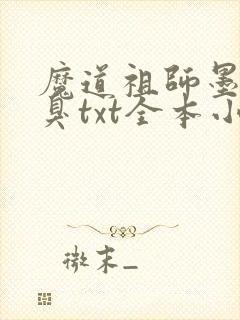 魔道祖師墨
臭txt全本小
微末_